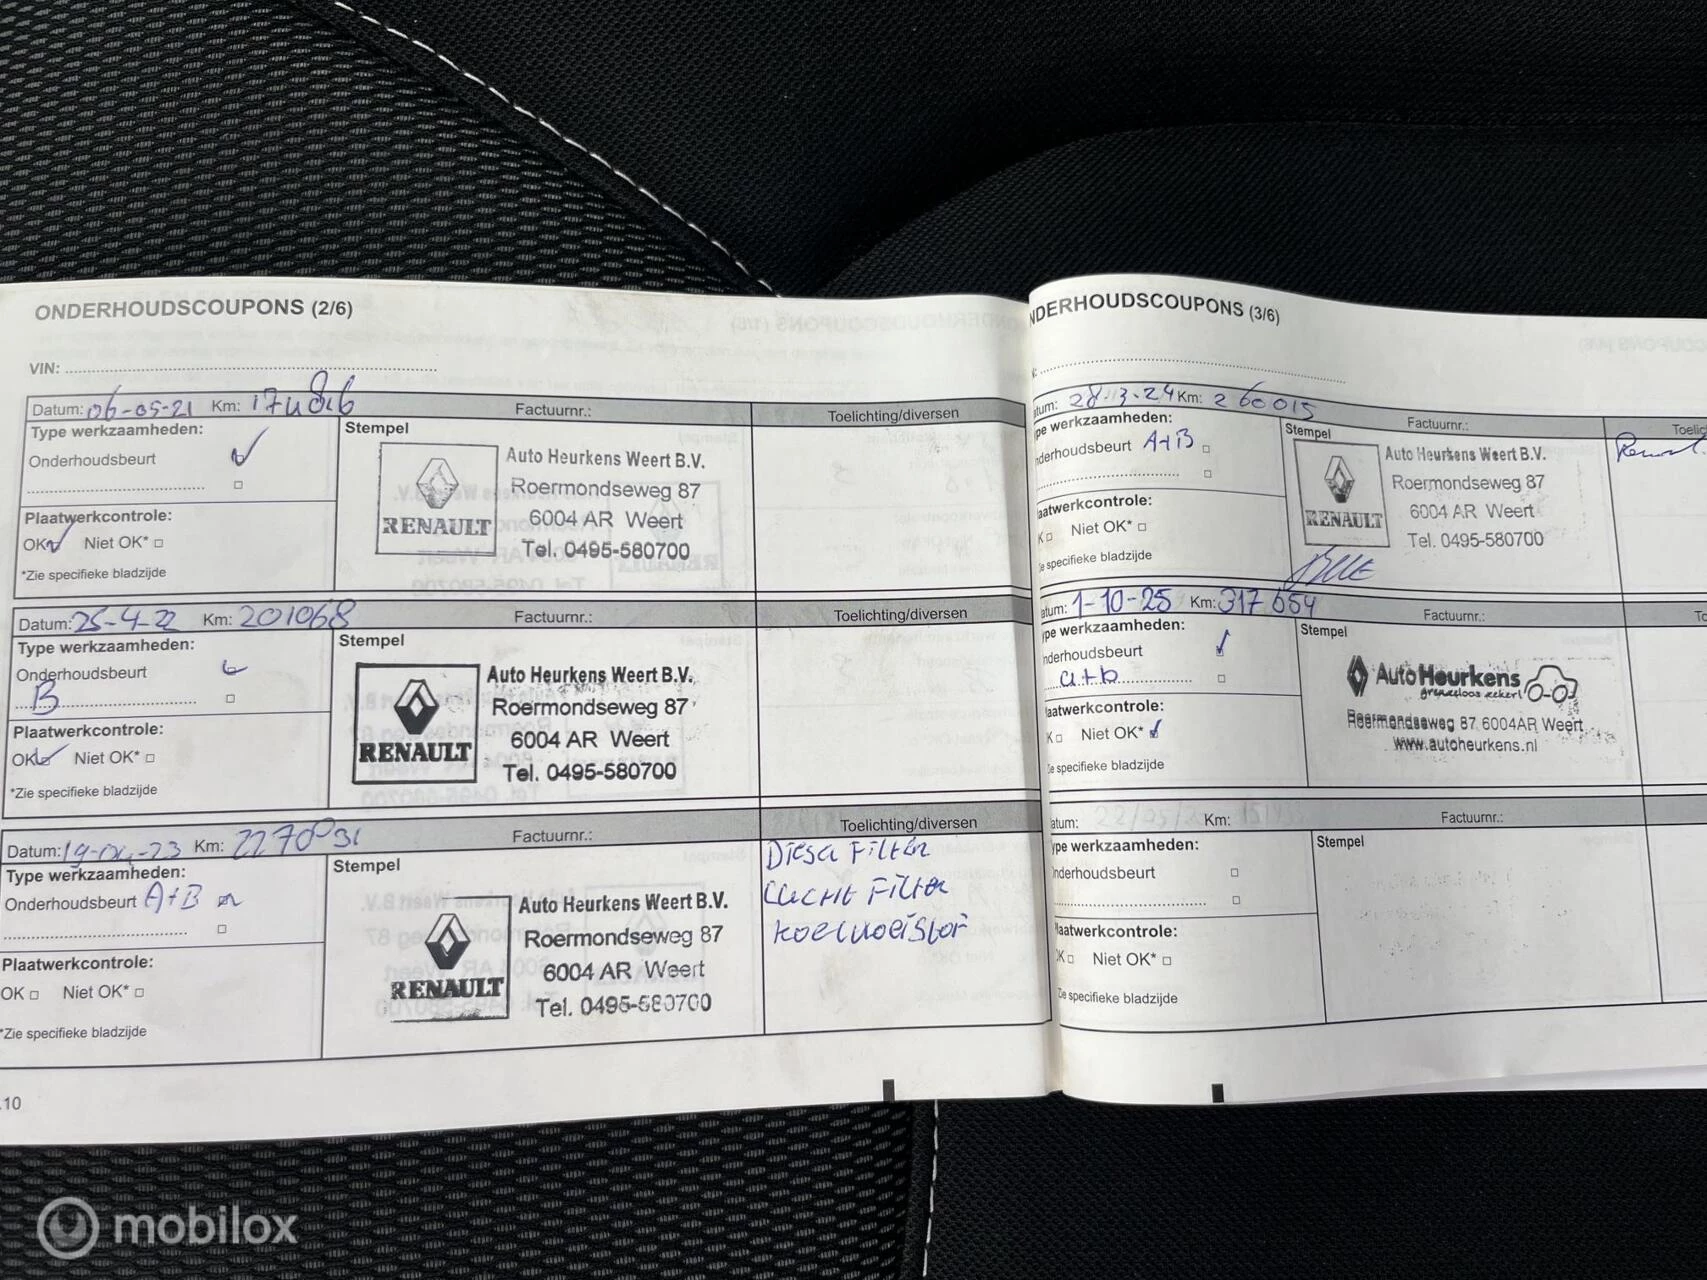 ONDERHOUDSCOUPONS (2/6)
VIN:
Datum: 06-05-21 Km: 174816 Factuurnr.: Toelichting/diversen
Type werkzaamheden:
Onderhoudsbeurt
Plaatwerkcontrole:
OK Niet OK*
*Zie specifieke bladzijde
Stempel
RENAULT
Auto Heurkens Weert B.V.
Roermondseweg 87
6004 AR Weert
Tel. 0495-580700
Datum: 25-4-22 Km: 201068 Factuurnr.: Toelichting/diversen
Type werkzaamheden:
Onderhoudsbeurt
B
Plaatwerkcontrole:
OK Niet OK*
*Zie specifieke bladzijde
Stempel
RENAULT
Auto Heurkens Weert B.V.
Roermondseweg 87
6004 AR Weert
Tel. 0495-580700
Datum: 19-04-23 Km: Factuurnr.: Toelichting/diversen
Type werkzaamheden:
Onderhoudsbeurt A+B
Plaatwerkcontrole:
OK Niet OK*
*Zie specifieke bladzijde
Stempel
RENAULT
Auto Heurkens Weert B.V.
Roermondseweg 87
6004 AR Weert
Tel. 0495-580700
Filter
Lucht Filter
Koelvloeistof
.10
NDERHOUDSCOUPONS (3/6)
atum: Km: 260015 Factuurnr.: Toelic
ype werkzaamheden:
nderhoudsbeurt A+B
laatwerkcontrole:
K Niet OK*
ie specifieke bladzijde
Stempel
RENAULT
Auto Heurkens Weert B.V.
Roermondseweg 87
6004 AR Weert
Tel. 0495-580700
atum: 1-10-25 Km: 317654 Factuurnr.: To
ype werkzaamheden:
nderhoudsbeurt
a+b
laatwerkcontrole:
K Niet OK*
ie specifieke bladzijde
Stempel
Auto Heurkens
grenzeloos zeker!
Roermondseweg 87 6004AR Weert
www.autoheurkens.nl
atum: Km: Factuurnr.:
ype werkzaamheden:
nderhoudsbeurt
laatwerkcontrole:
OK Niet OK*
ie specifieke bladzijde
Stempel
mobilox